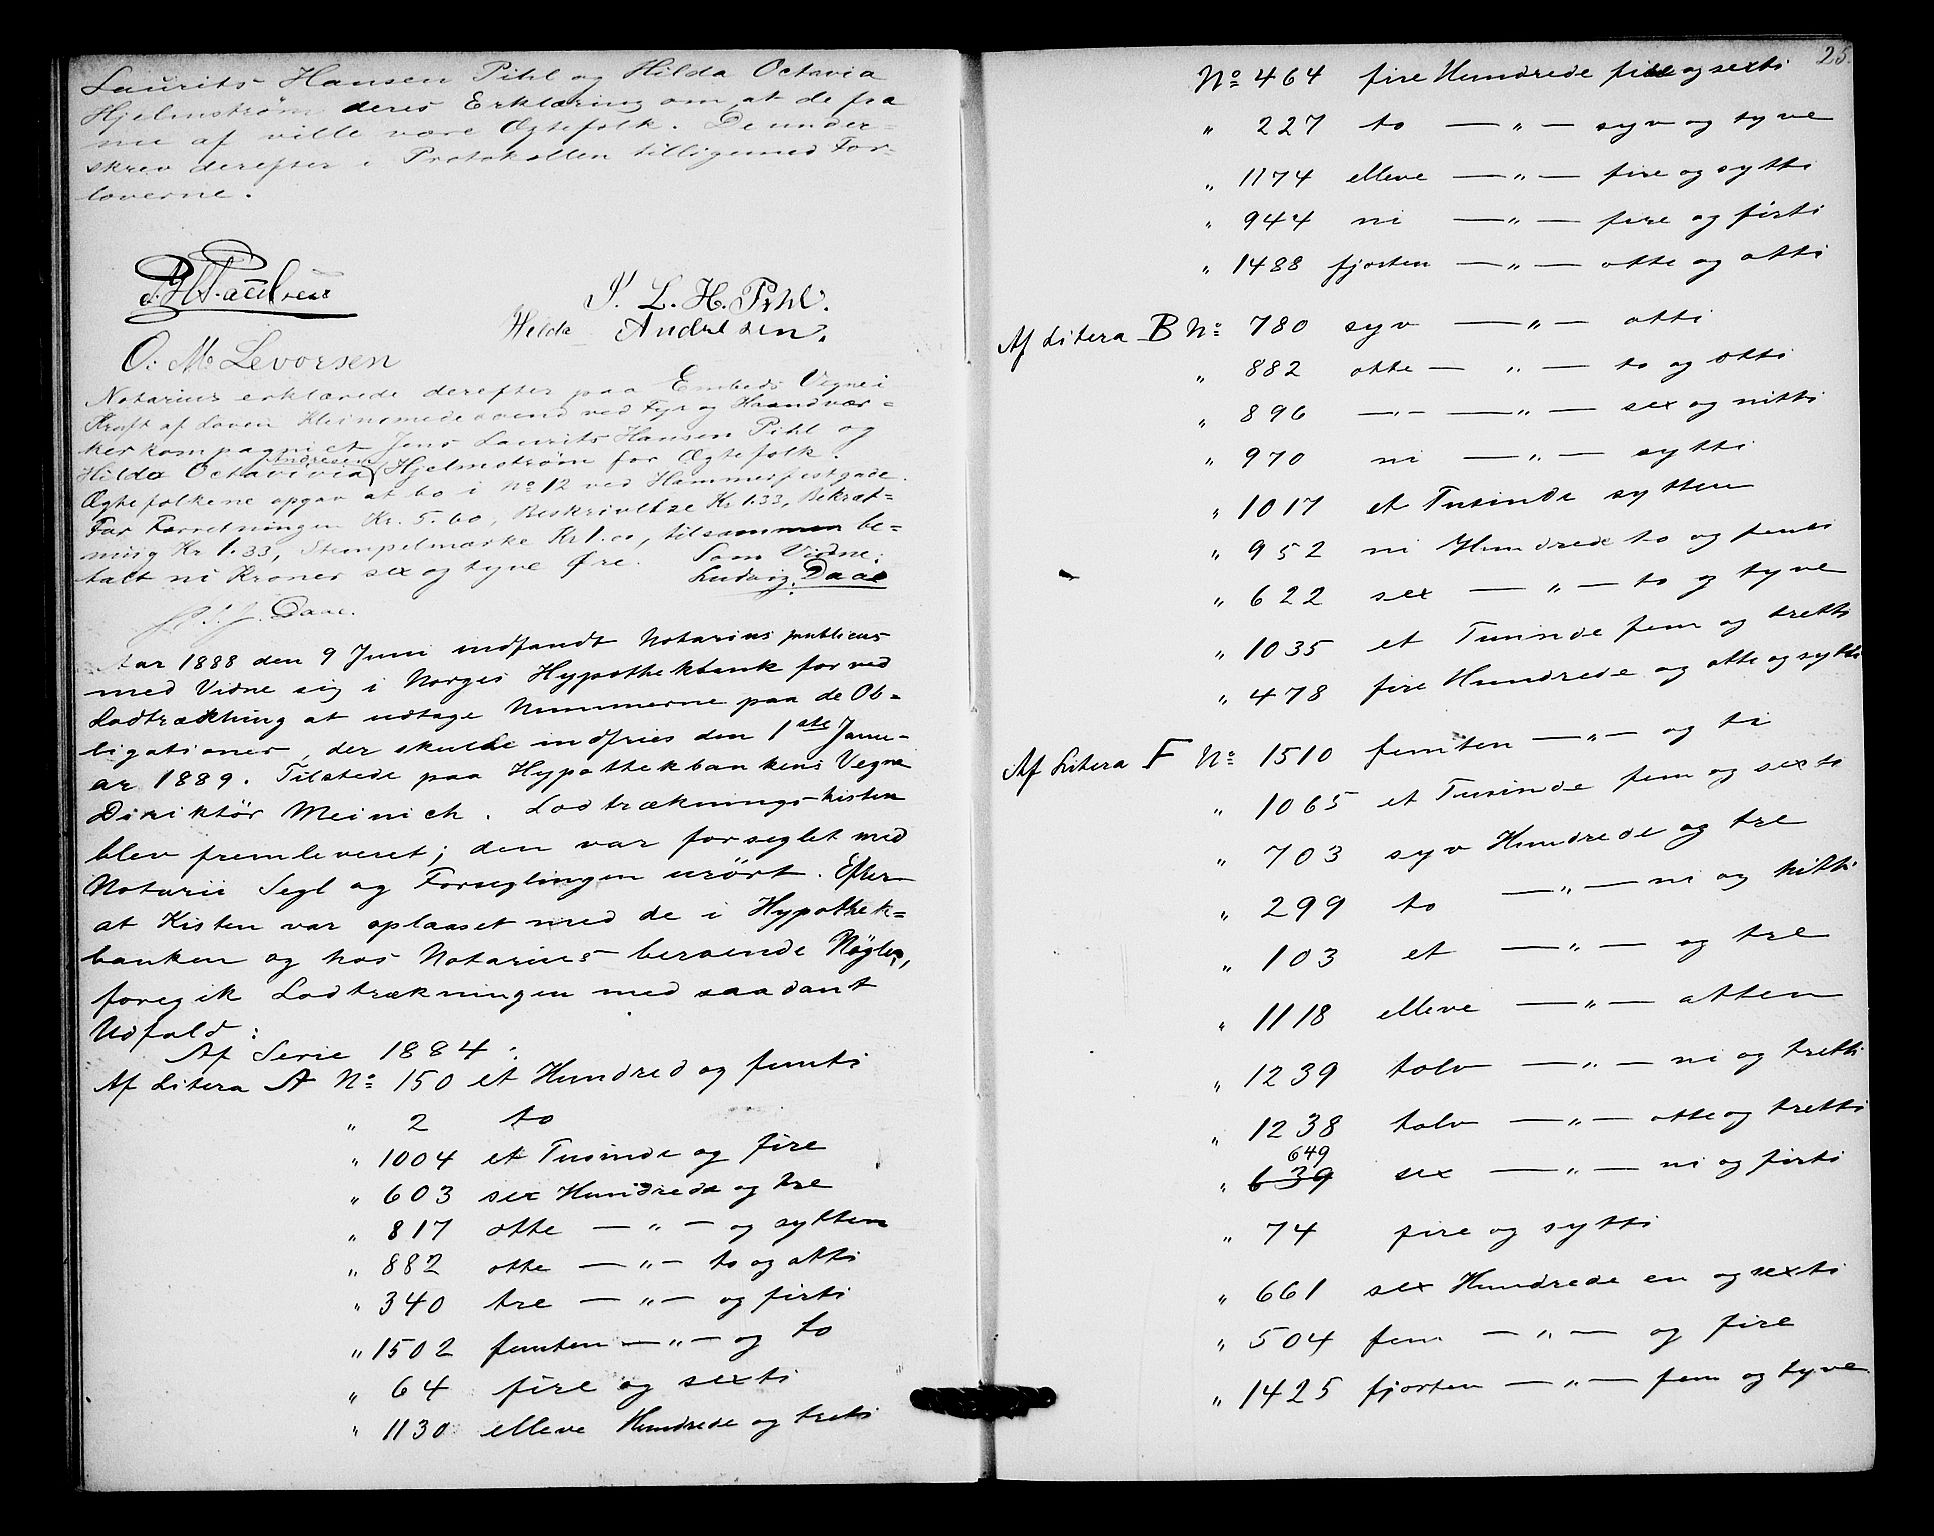 Laurits Hansen Pihl og Hilda Octavia
Hjelmstrøm deres Erklæring om at de fra
nu af ville være Ægtefolk. De under-
skrev derefter i Protokollen tilligemed For-
loverne.
J. L. H. Pihl.
Hilda Andresen.
O. M. Levorsen
Notarius erklærede derefter paa Embeds Vegne i
Kraft af Loven Kleinsmedesvend ved Fyr og Haandvær-
kerkompagniet Jens Laurits Hansen Pihl og
Hilda Octavivia Andresen Hjelmstrøm for Ægtefolk.
Ægtefolkene opgav at bo i No 12 ved Hammerfestgade.
For Forretningen Kr. 5.60, Beskrivelse Kr 1.33, Bekræf-
ning Kr 1.33, Stempelmærke Kr 1.00, tilsammen be-
talt ni Kroner sex og tyve Øre. Som Vidne:
Ludvig Daae
Daae.
Aar 1888 den 9 Juni indfandt Notarius publicus
med Vidne sig i Norges Hypothekbank for ved
Lodtrækning at udtage Nummerne paa de Ob-
ligationer, der skulde indfries den 1ste Janu-
ar 1889. Tilstede paa Hypothekbankens Vegne
Direktør Meinich. Lodtrækningskisten
blev fremleveret; den var forseglet med
Notarii Segl og Forseglingen urørt. Efter
at Kisten var oplaaset med de i Hypothek-
banken og hos Notarius beroende Nøgler,
foregik Lodtrækningen med saadant
Udfald:
Af Serie 1884:
Af Litera A No 150 et Hundred og femti
" 2 to
" 1004 et Tusinde og fire
" 603 sex Hundrede og tre
" 817 otte — " — og sytten
" 882 otte — " — to og otti
" 340 tre — " — og firti
" 1502 femten — " — og to
" 64 fire og sexti
" 1130 elleve Hundrede og treti
25.
No 464 fire Hundrede fire og sexti
" 227 to — " — syv og tyve
" 1174 elleve — " — fire og sytti
" 944 ni — " — fire og firti
" 1488 fjorten — " — otte og otti
Af Litera B No 780 syv — " — otti
" 882 otte — " — to og otti
" 896 — " — — " — sex og nitti
" 970 ni — " — sytti
" 1017 et Tusinde sytten
" 952 ni Hundrede to og femti
" 622 sex — " — to og tyve
" 1035 et Tusinde fem og tretti
" 478 fire Hundrede og otte og sytti
Af Litera F No 1510 femten — " — og ti
" 1065 et Tusinde fem og sexti
" 703 syv Hundrede og tre
" 299 to — " — ni og nitti
" 103 et — " — og tre
" 1118 elleve — " — atten
" 1239 tolv — " — ni og tretti
" 1238 tolv — " — otte og tretti
649
" 639 sex — " — ni og firti
" 74 fire og sytti
" 661 sex Hundrede en og sexti
" 504 fem — " — og fire
" 1425 fjorten — " — fem og tyve